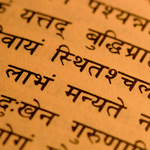 पश्यन्न
यत्तद् बुद्धिग्रा
वायं स्थितश्चल
लाभं मन्यते
दुःखेन गुरुणा